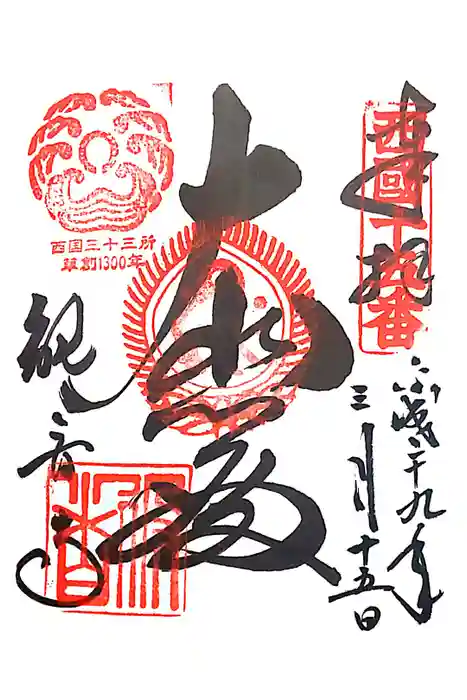 奉拝
西國十五番
平成二十九年
三月十五日
大悲殿
西国三十三所
草創1300年
観音寺